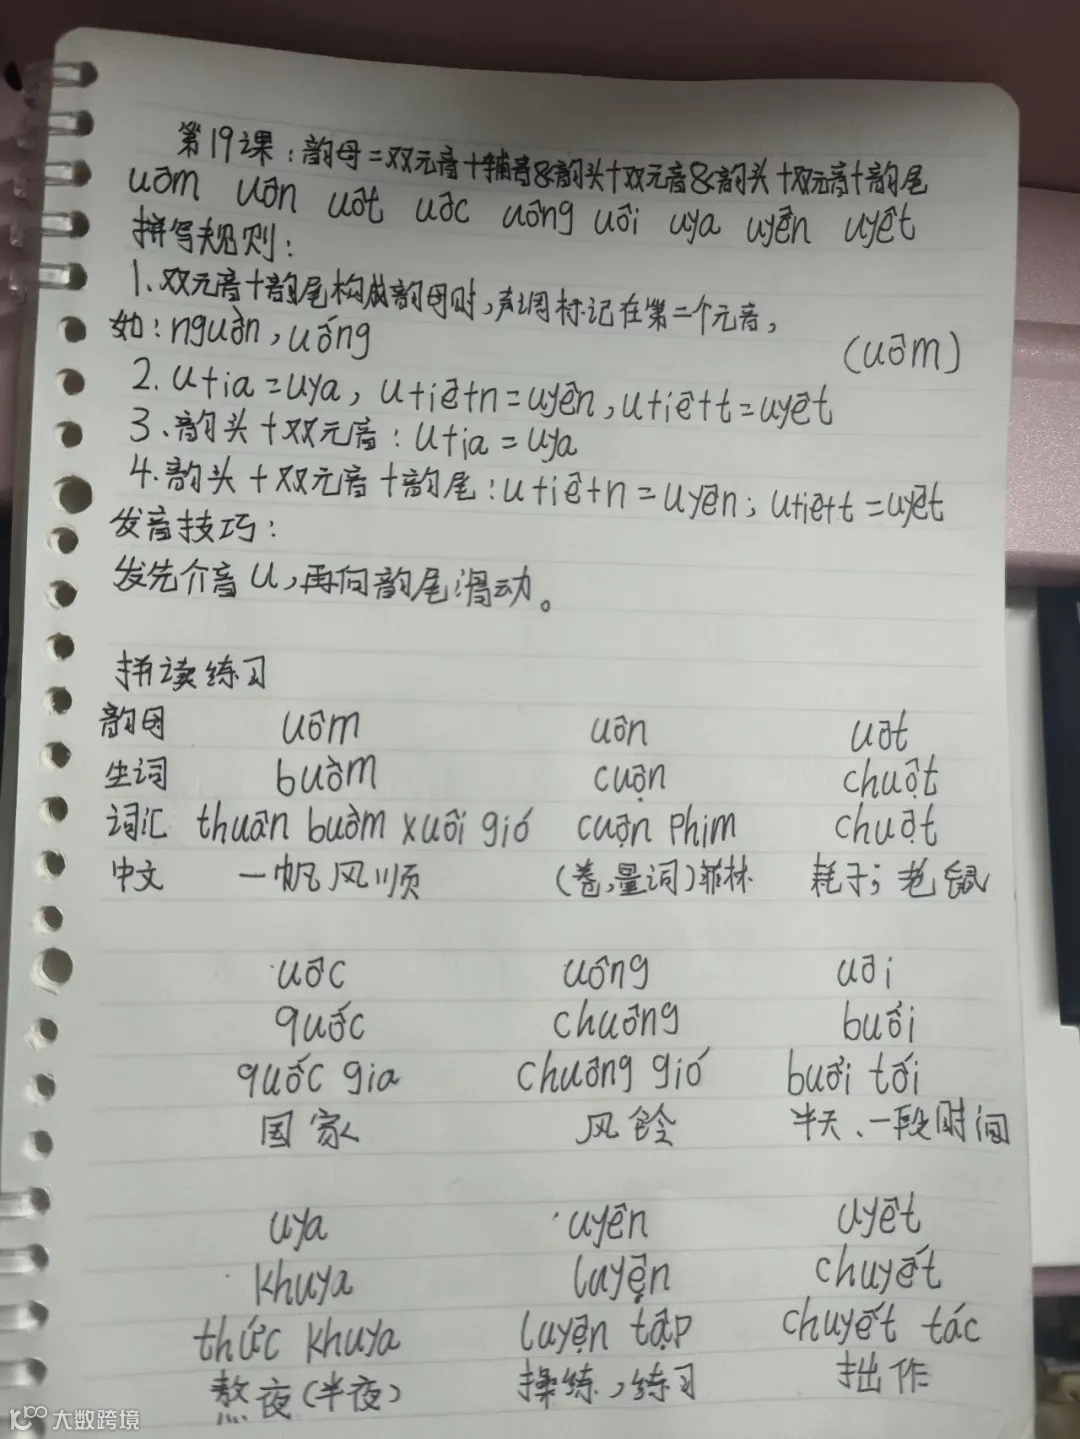 第19课：韵母=双元音+辅音&韵头+双元音&韵头+双元音+韵尾
uôm uôn uôt uôc uông uôi uya uyên uyêt
拼写规则：
1.双元音+韵尾构成韵母时，声调标记在第二个元音，
如：nguồn，uống (uôm)
2. u+ia=uya，u+iê+n=uyên，u+iê+t=uyêt
3、韵头+双元音：u+ia=uya
4.韵头+双元音+韵尾：u+iê+n=uyên；u+iê+t=uyêt
发音技巧：
发先介音u，再向韵尾滑动。
拼读练习
韵母 uôm uôn uôt
生词 buồm cuộn chuột
词汇 thuân buồm xuôi gió cuộn phim chuột
中文 一帆风顺 (卷，量词)菲林 耗子；老鼠
uôc uông uôi
quốc chuông buổi
quốc gia chuông gió buổi tối
国家 风铃 半天、一段时间
uya uyên uyêt
khuya luyện chuyết
thức khuya luyện tập chuyết tác
熬夜(半夜) 操练，练习 拙作
大数跨境